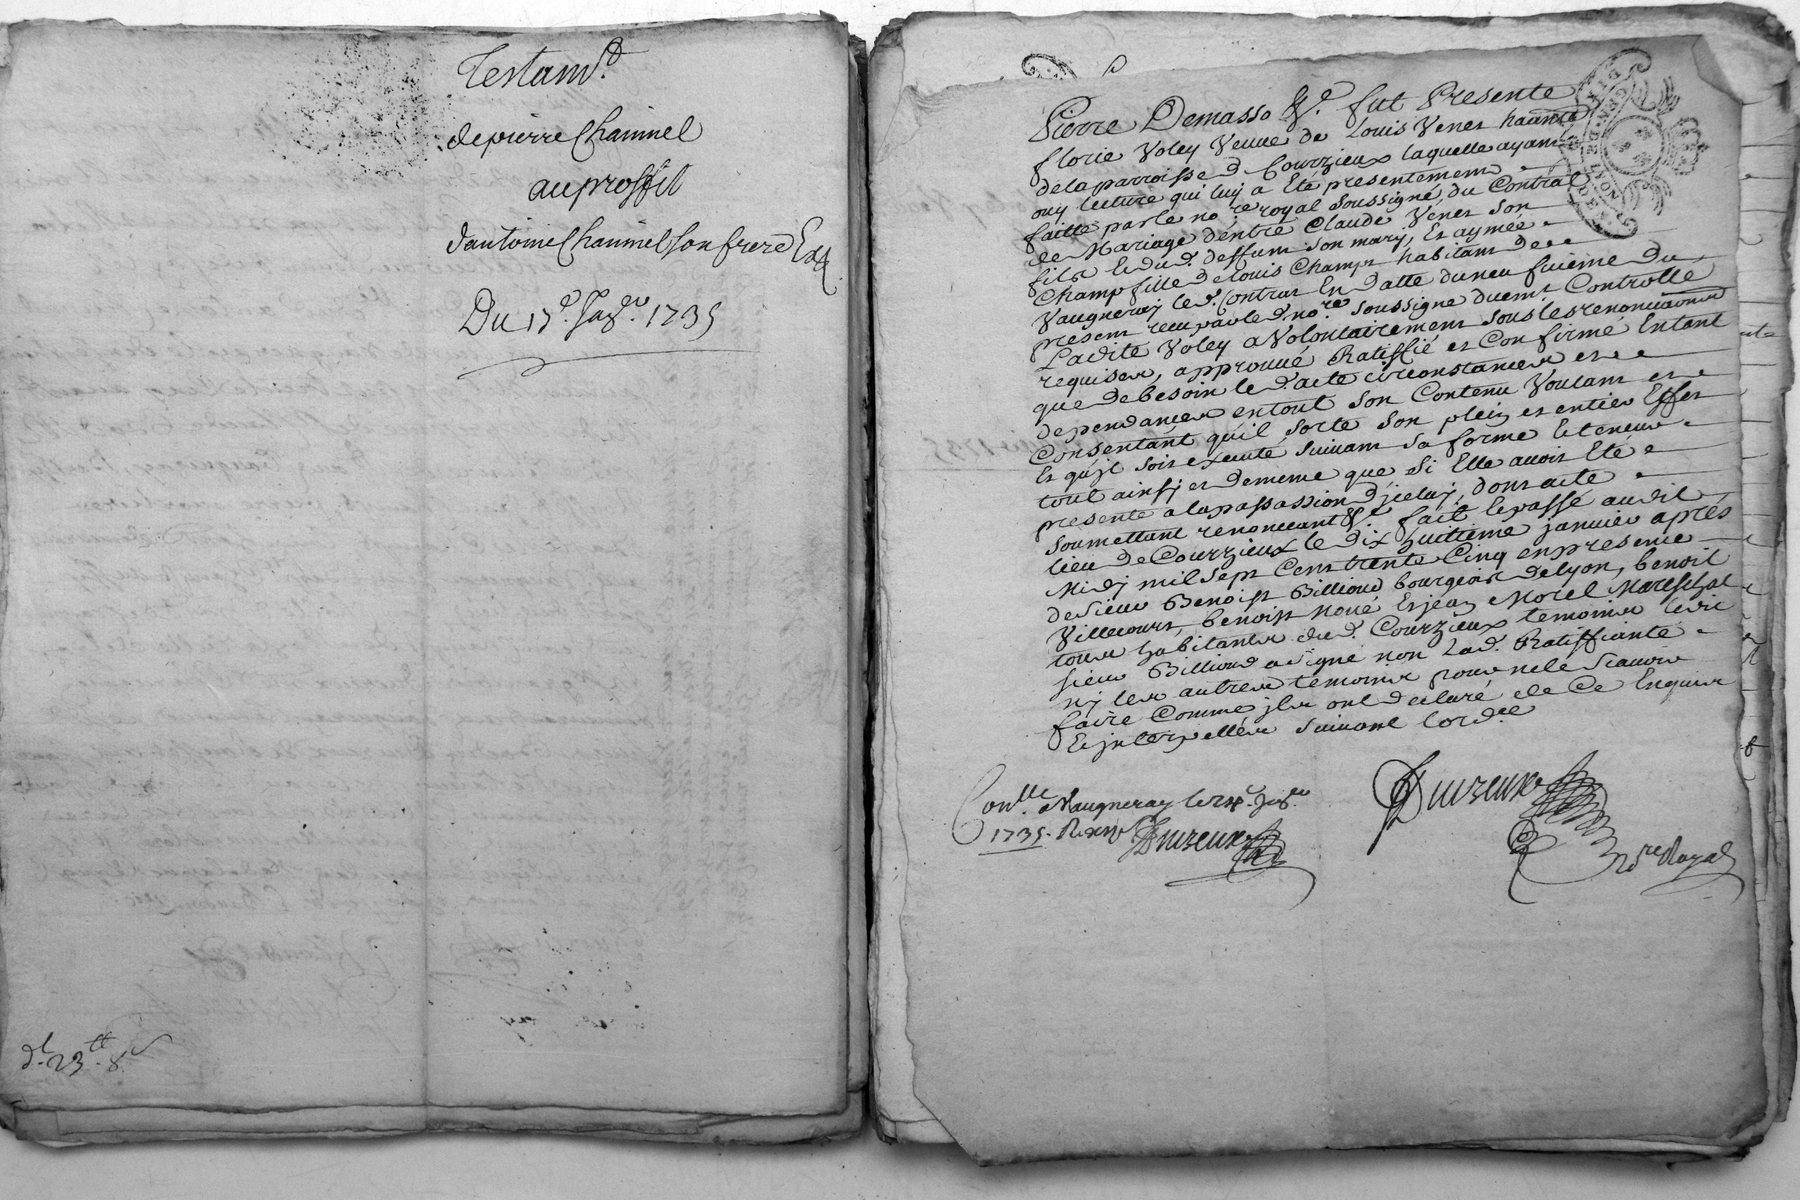 Testam.t
de pierre Chaninel
au proffit
d'antoine Chaninel son frere
Du 17.e Janv.r 1735
d.t 23.tt 8.
Pierre Demasso &c. fut Presente
florie Voley Veuve de Louis Venet
de la parroisse d Courzieux laquelle ayant
ouy lecture qui luy a Eté presentement
faitte par le no.re royal soussigné, du Contrat
de Mariage d'entre Claude Venet son
fils et dud. deffunt son mary, Et aymée
Champ fille de Louis Champt habitant de
Vaugneray led. Contrat En datte du neufuieme du
present receu par led. no.re soussigné duemt Controllé
Ladite Voley a Volontairement sous les renonciations
requises, approuvé Ratiffié et Confirmé Entant
que de besoin led. acte circonstances et
dependances en tout son Contenu Voulant et
Consentant qu'il sorte son plein et entier Effet
Et qu'jl soit executé suivant sa forme Et teneur
tout ainsy et de meme que si Elle avoit Eté
presente a la passassion d'jceluy, dont acte
soumettant renonceant &c. fait et passé audit
lieu de Courzieux le dix huitieme janvier après
Midj mil sept Cent trente Cinq en presence
de sieur Benoist Billioud bourgeois de Lyon, benoit
Villecourt, benoist Et jean Morel Mareschal
tous habitants dud. Courzieux temoins
sieur Billioud a signé non Lad. Ratiffiante
ny les autres temoins pour ne le scavoir
faire Comme jls ont declaré de Ce Enquis
Et jnterpellés suivant l'ord.ce
Con.lle a Vaugneray le Janv.er
1735.
No.re Royal